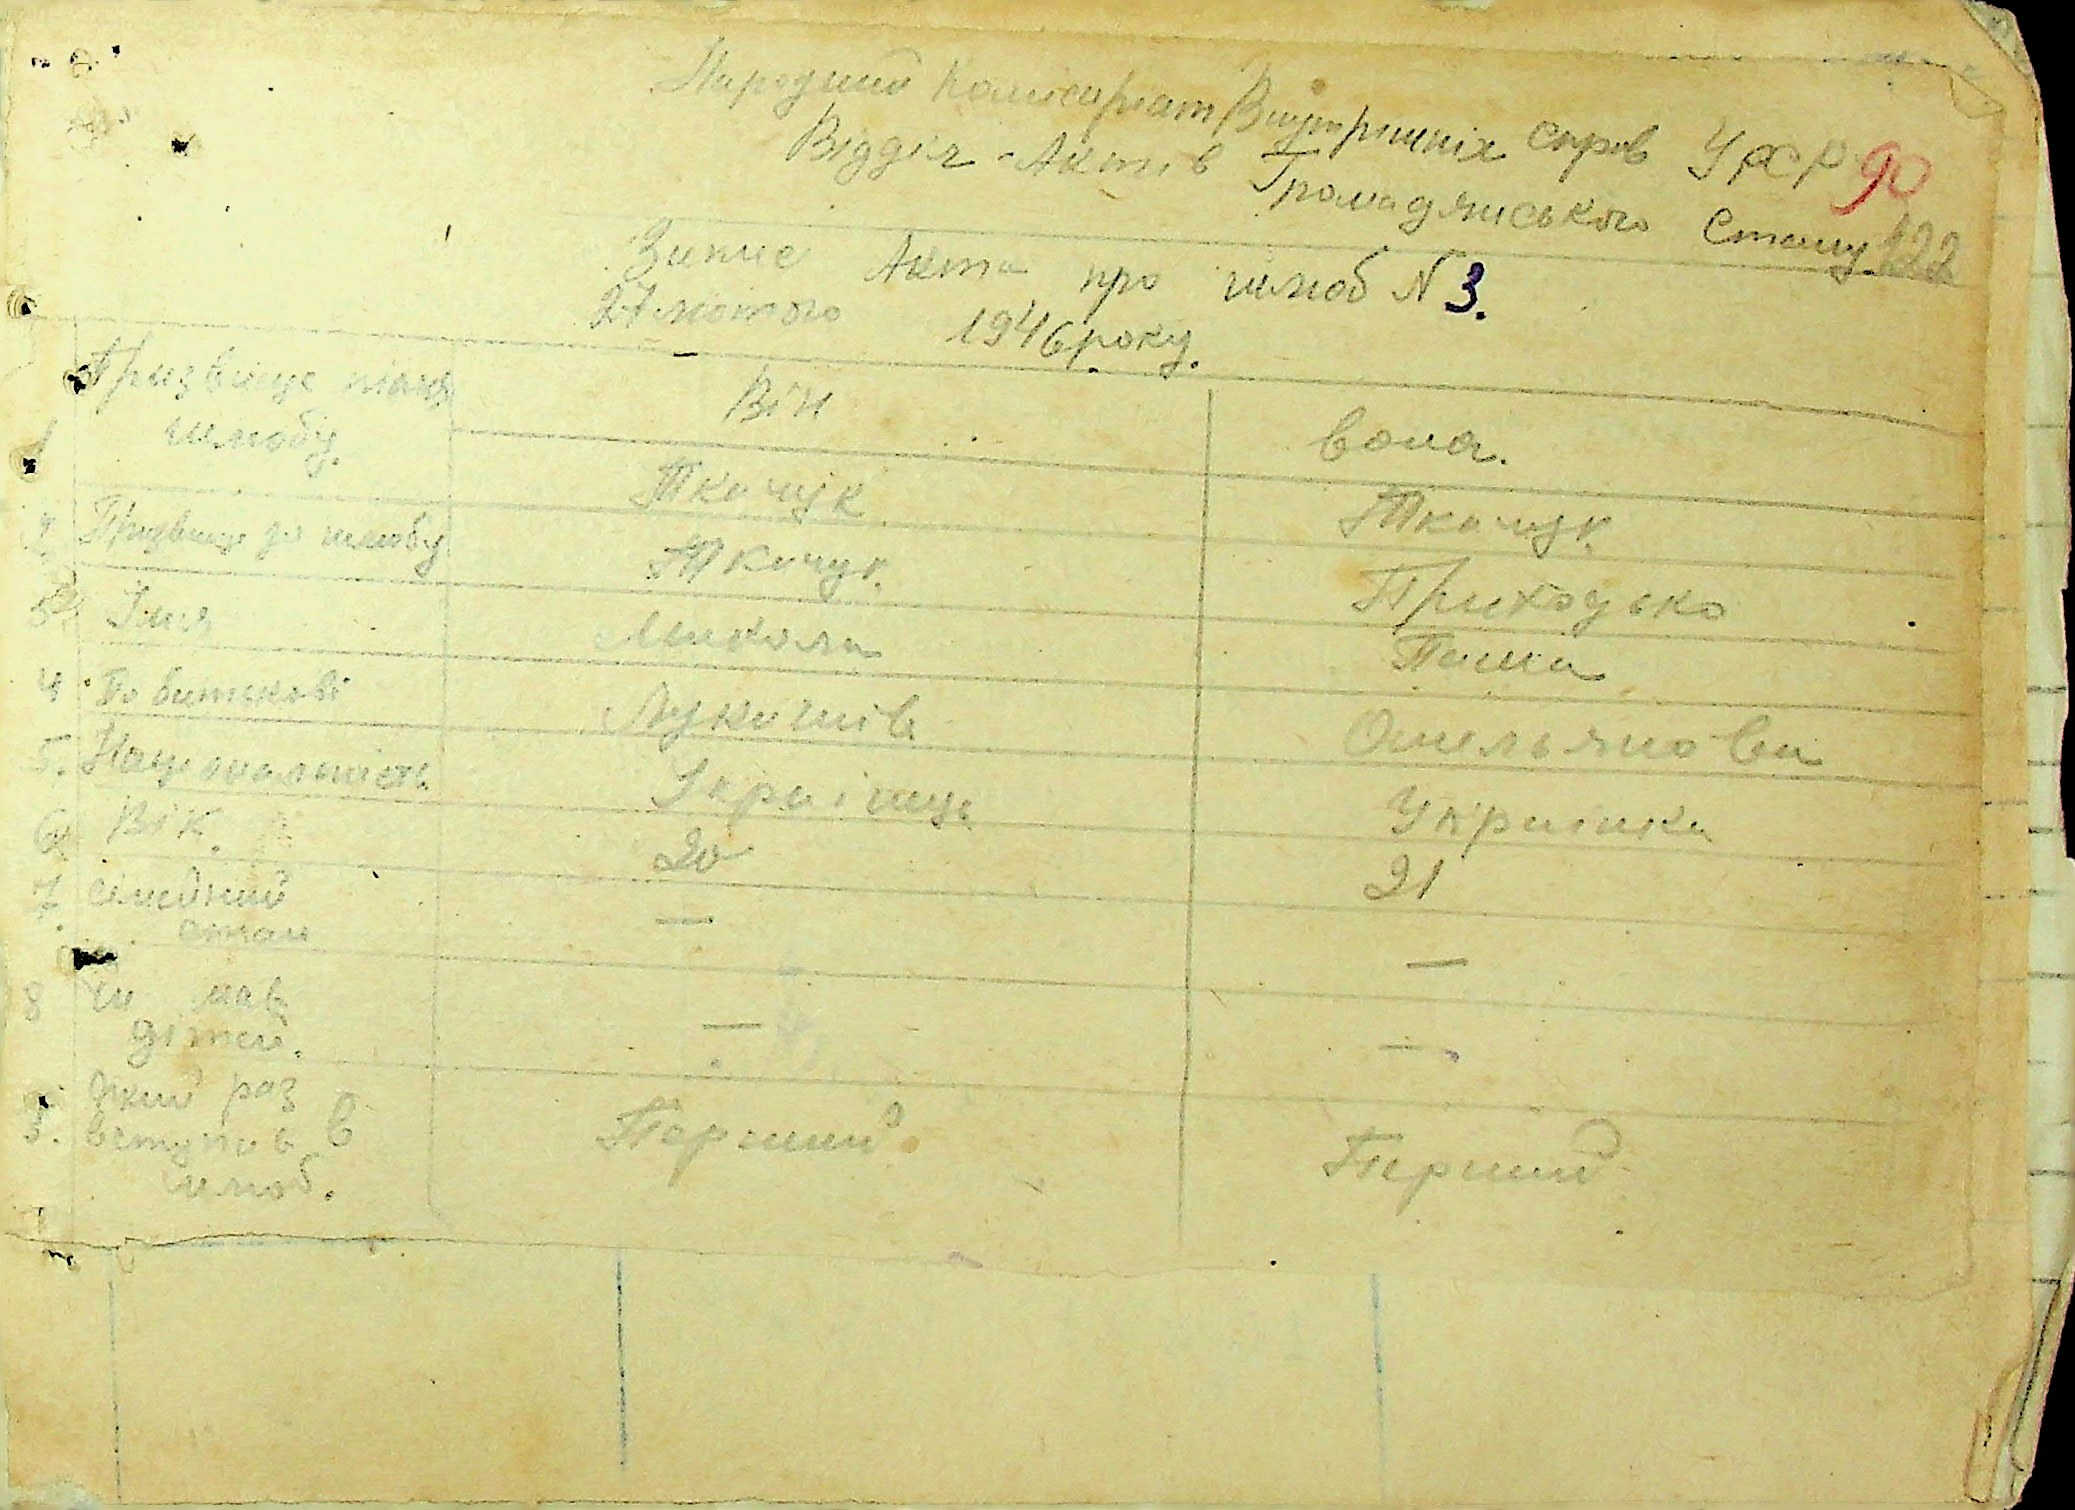 Народний Комисариат Внутрішніх справ УРСР 90
Відділ Актів Громадянського Стану 122
Запис Акта про шлюб N 3.
27 лютого 1946 року.
1 Призвище після шлюбу. Він вона.
Ткачук Ткачук.
2 Призвище до шлюбу Ткачук. Приходько
3 Імя Микола Палка
4 По батькові Лукашів Омельянова
5. Національність. Українець Українка
6 Вік. 20 21
7. сімейний
стан — —
8 чи мав
дітей. — —
9. який раз
вступив в Перший Перший
шлюб.